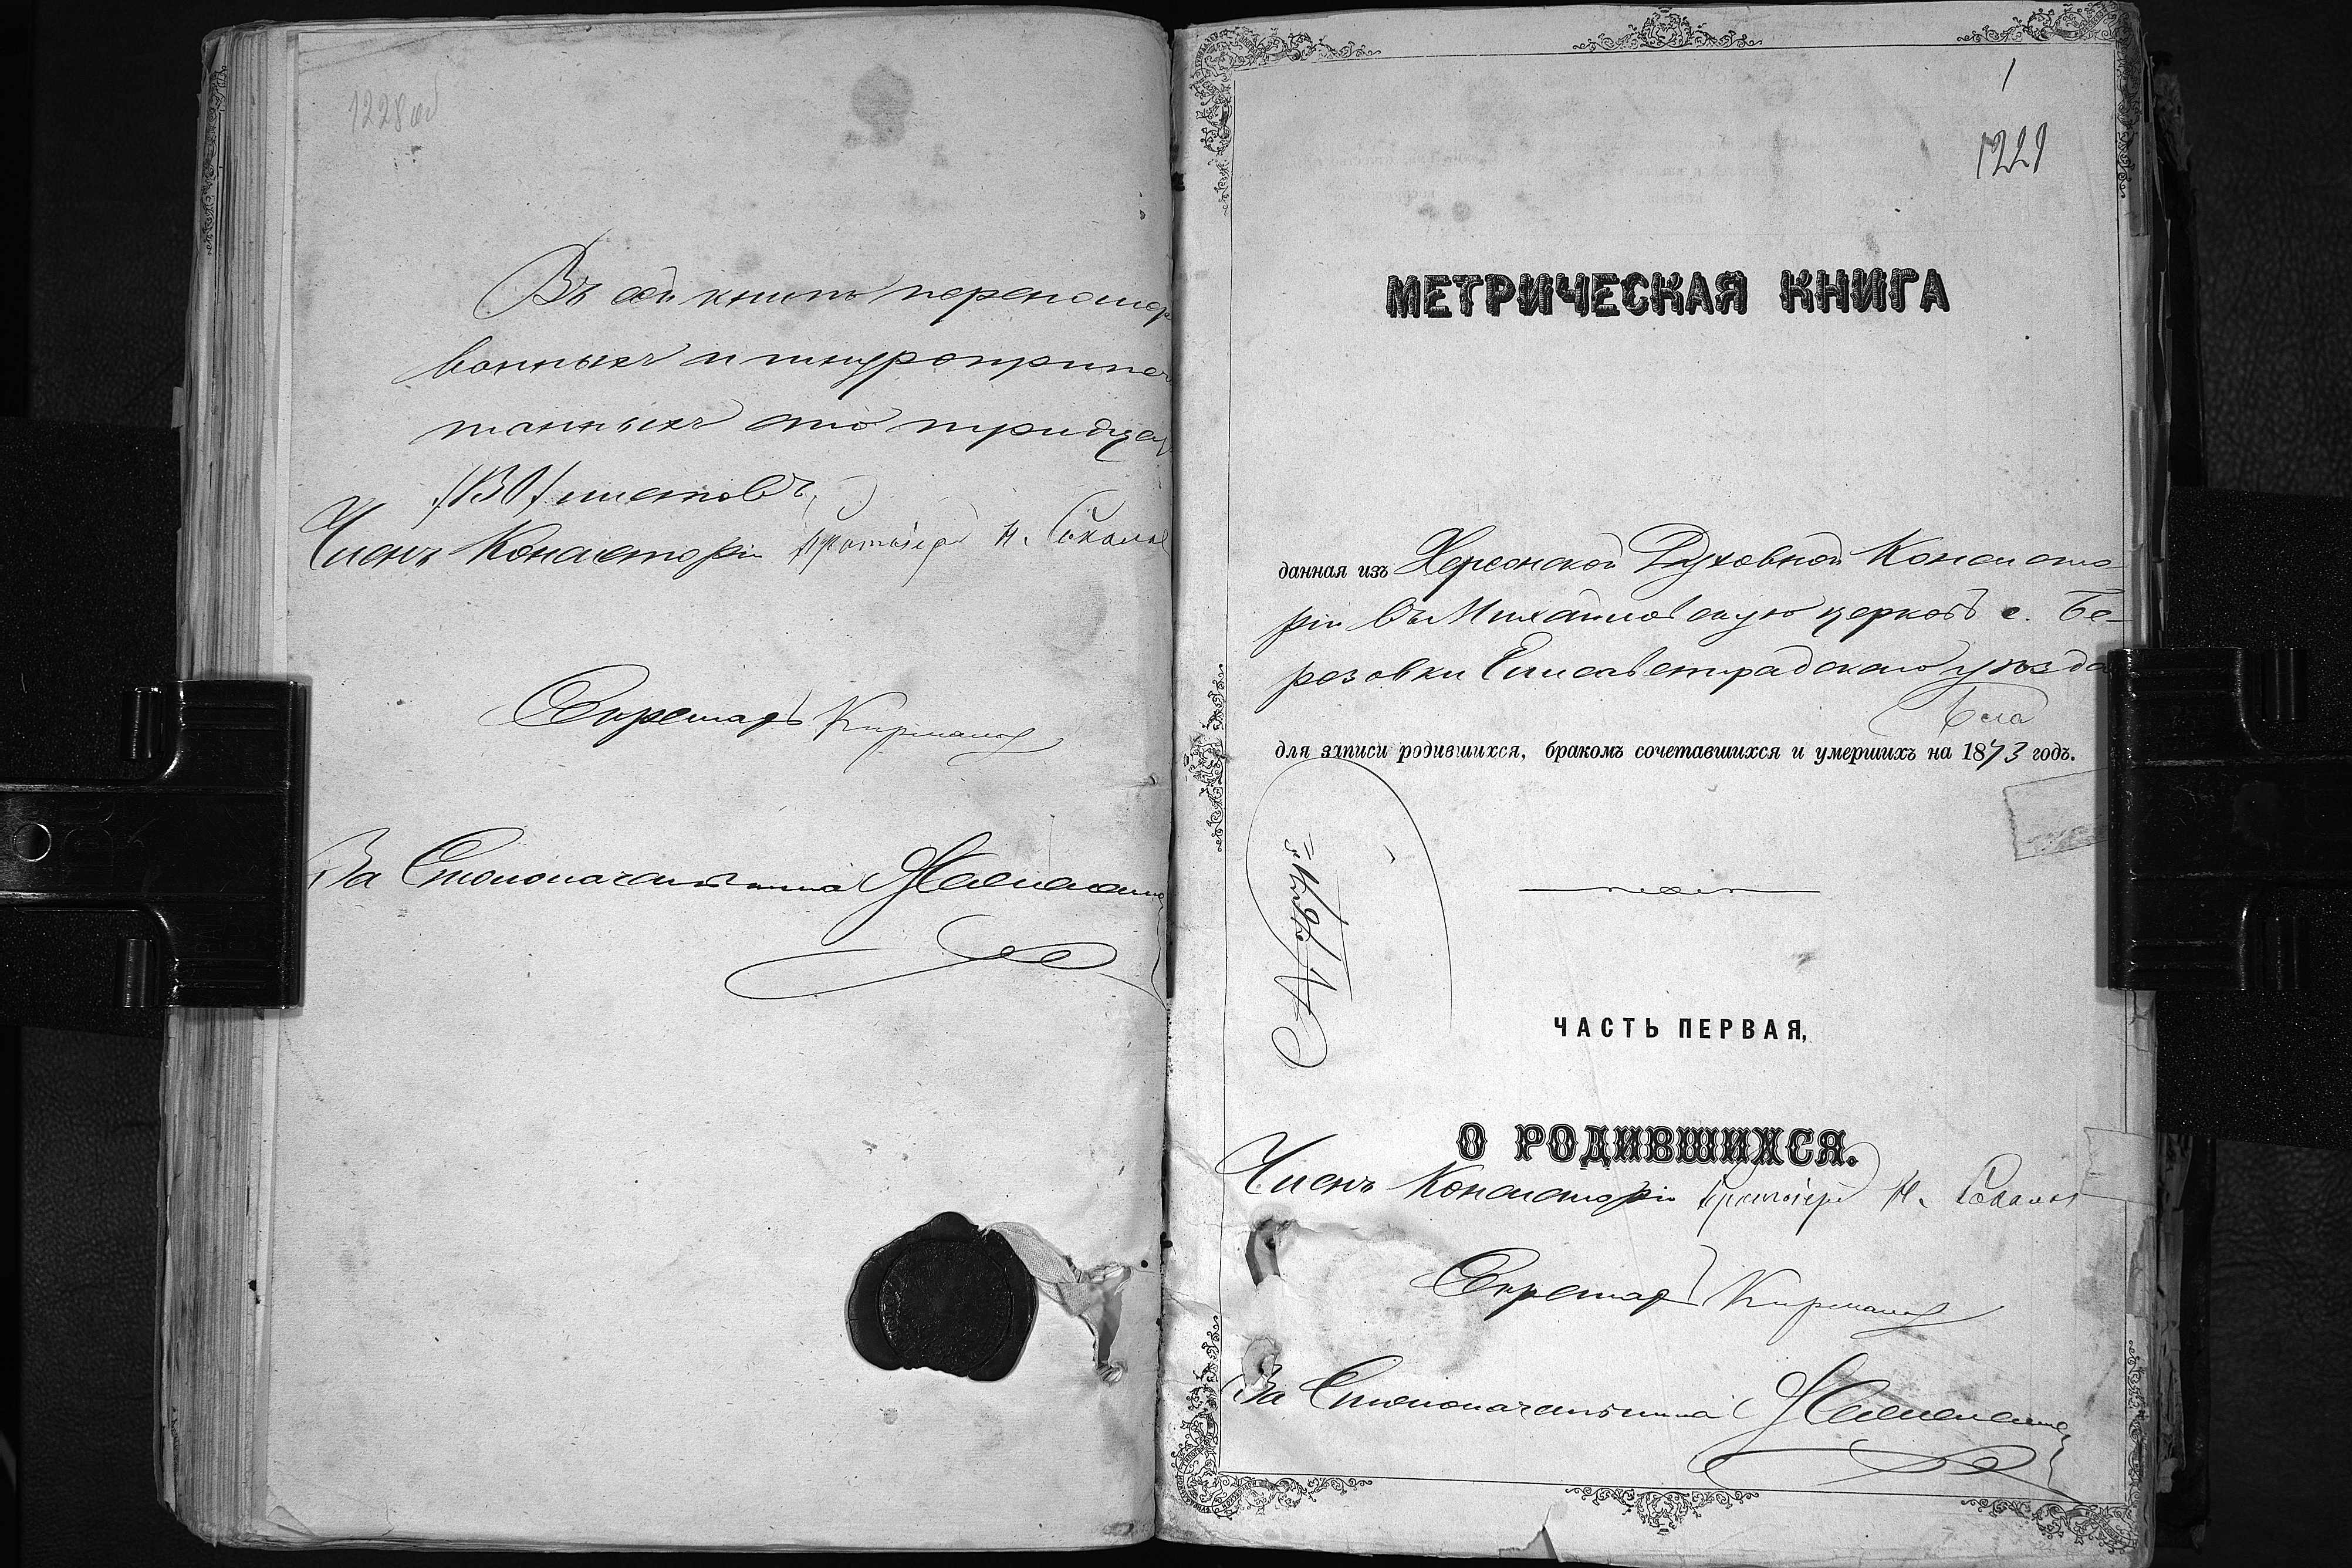 1228 об
Въ сей книгѣ перенумер
ванныхъ и шнуроприпеча
танныхъ сто тридца
/130/ листовъ.
Членъ Консисторіи Протоіерей Н. Соколов
Секретарь
За Столоначальника
1
1229
МЕТРИЧЕСКАЯ КНИГА
данная изъ Херсонской Духовной Консисто-
ріи въ Михайловскую церковь с. Бе-
резовки Елисаветградскаго уѣзда
для записи родившихся, бракомъ сочетавшихся и умершихъ на 1873 годъ.
ЧАСТЬ ПЕРВАЯ,
О РОДИВШИХСЯ.
Членъ Консисторіи Протоіерей Н. Соколов
Секретарь
За Столоначальника